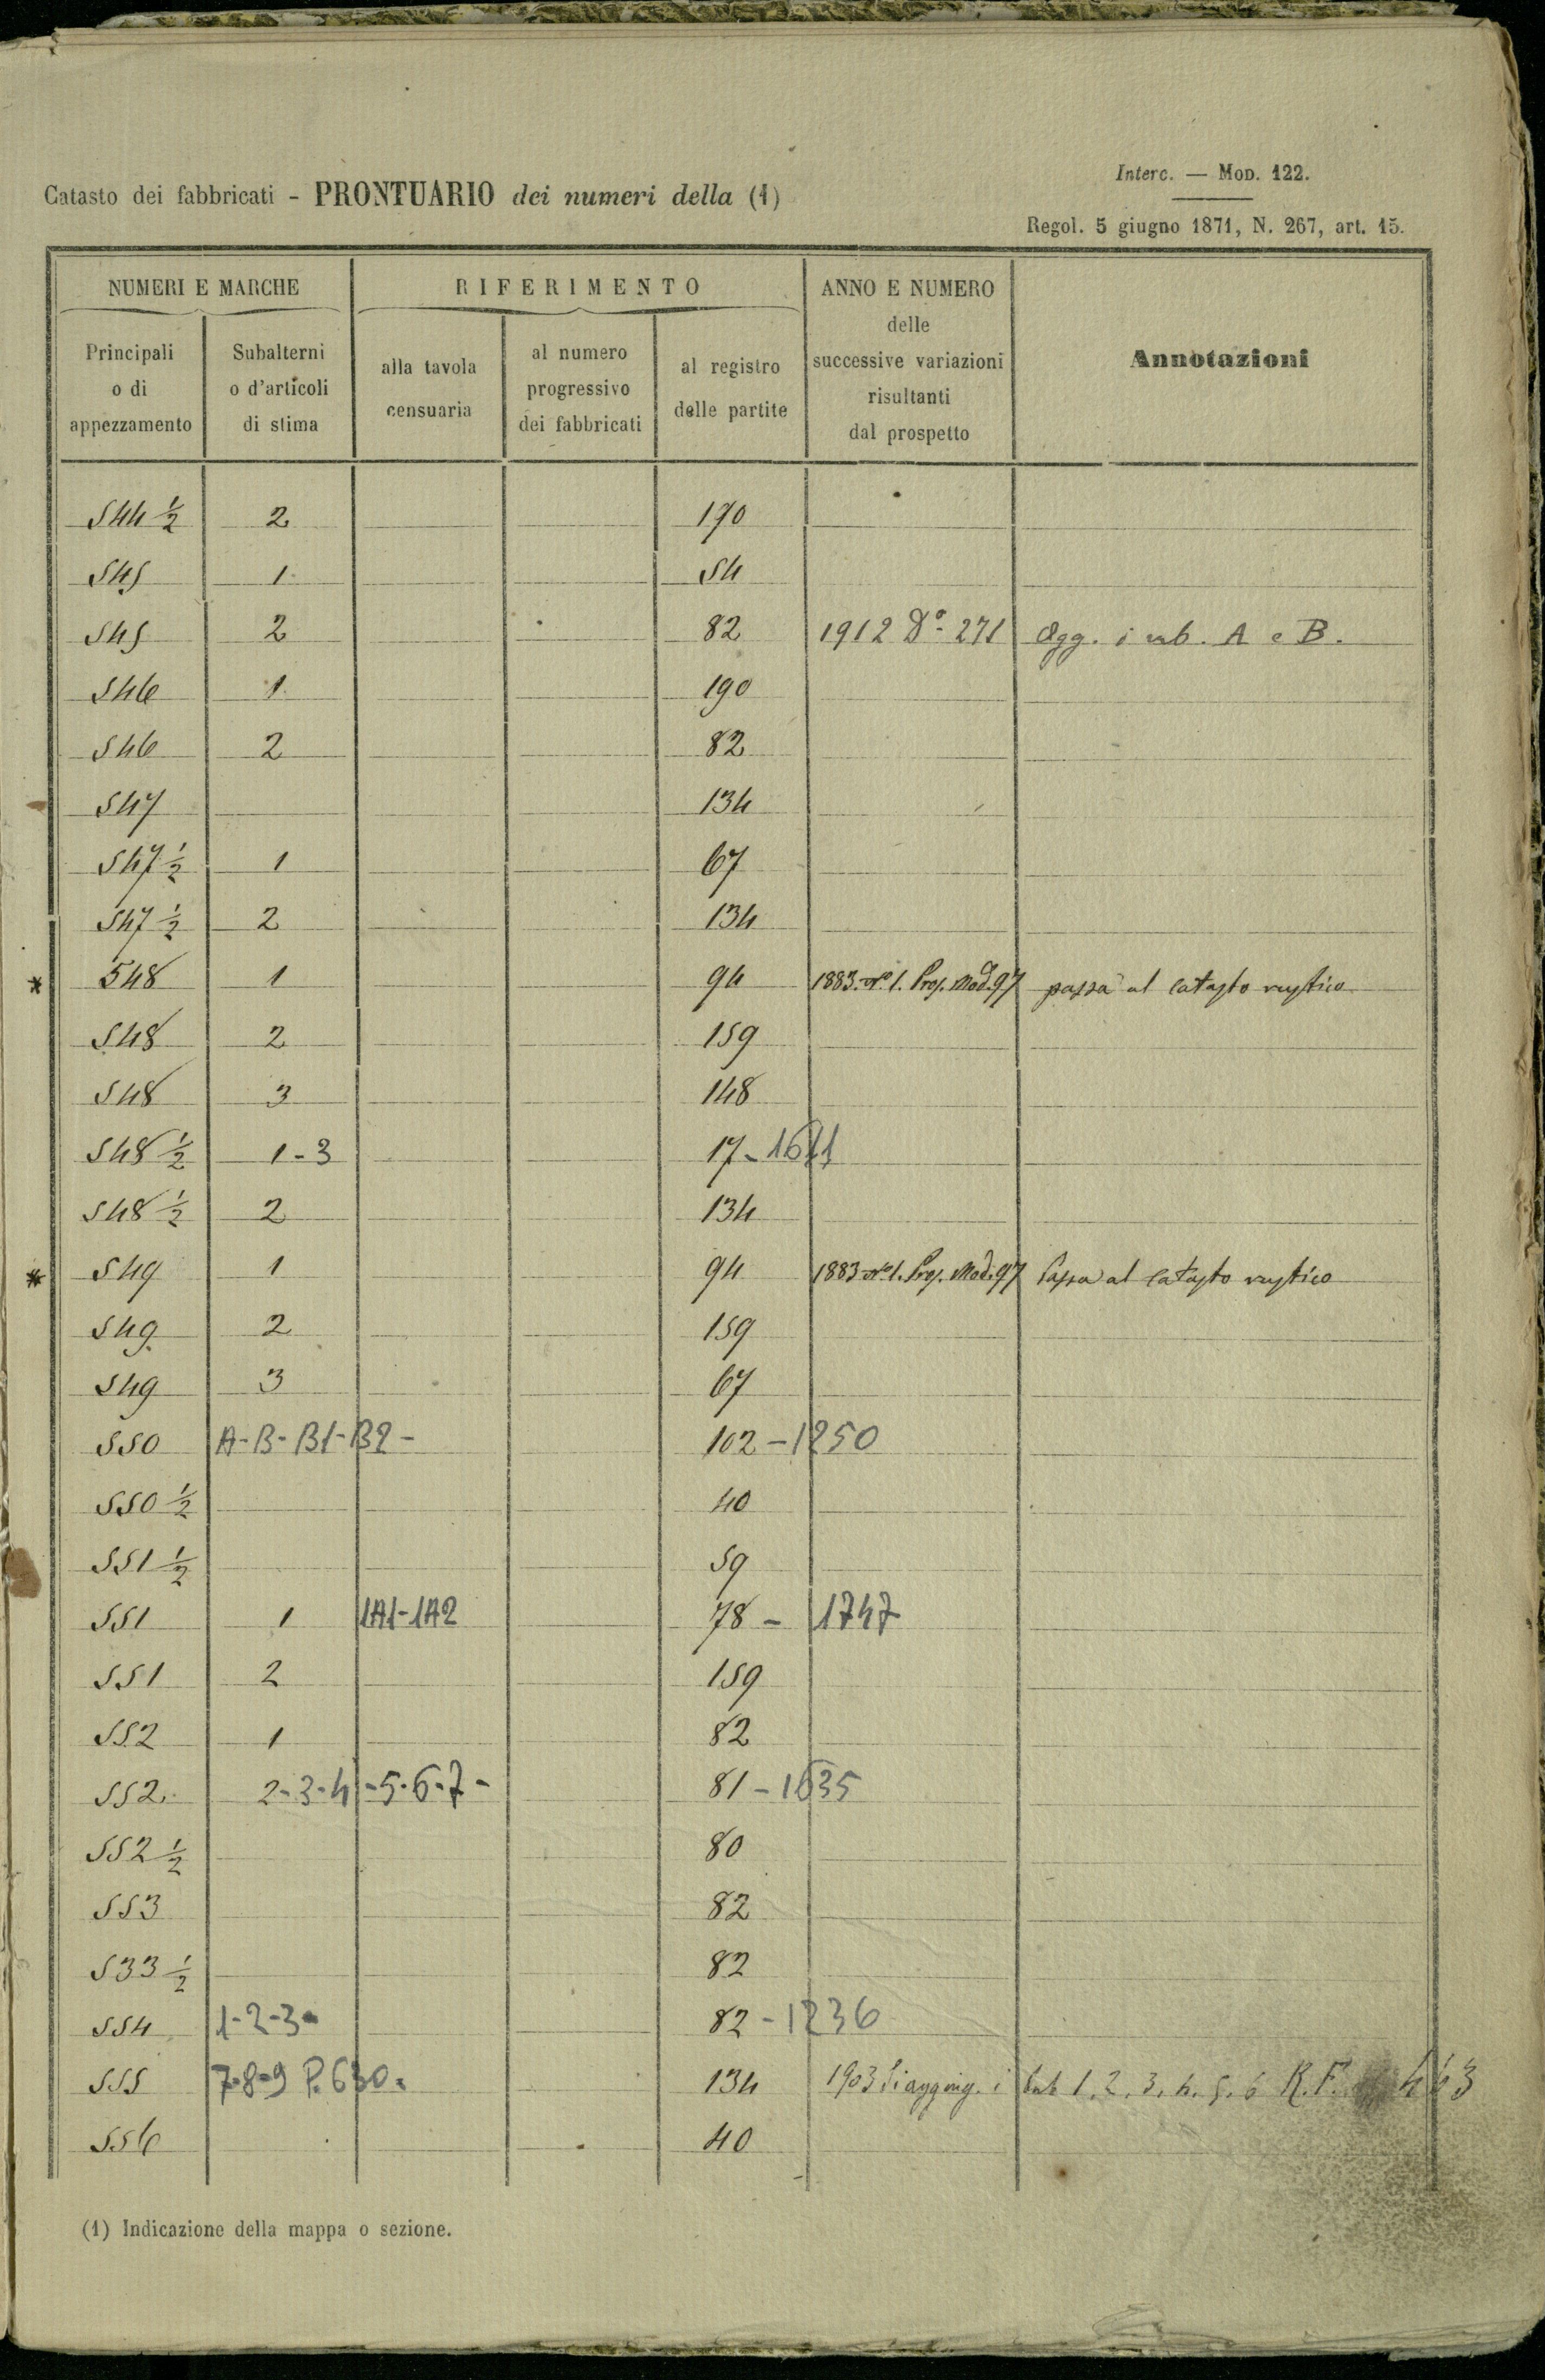 Catasto dei fabbricati - PRONTUARIO dei numeri della (1)
Interc. — Mod. 122.
Regol. 5 giugno 1871, N. 267, art. 15.
NUMERI E MARCHE
RIFERIMENTO
ANNO E NUMERO
delle
successive variazioni
risultanti
dal prospetto
Annotazioni
Principali
o di
appezzamento
Subalterni
o d'articoli
di stima
alla tavola
censuaria
al numero
progressivo
dei fabbricati
al registro
delle partite
544 ½ 2 170
545 1 54
545 2 82 1912 Dº 271 Agg. i sub. A e B.
546 1 190
546 2 82
547 134
547 ½ 1 67
547 ½ 2 134
* 548 1 94 1883. Nº 1. Prosp. Mod. 97 passa al catasto rustico
548 2 159
548 3 148
548 ½ 1-3 17-1611
548 ½ 2 134
* 549 1 94 1883 Nº 1. Prosp. Mod. 97 Passa al catasto rustico
549 2 159
549 3 67
550 A-B-B1-B2- 102-1250
550 ½ 40
551 ½ 59
551 1 1A1-1A2 78 - 1747
551 2 159
552 1 82
552 2-3-4-5-6-7- 81-1635
552 ½ 80
553 82
533 ½ 82
554 1-2-3- 82-1236
555 7-8-9 P. 630. 134 1903 Si aggiung. i sub 1. 2. 3. 4. 5. 6 R.F. 463
556 40
(1) Indicazione della mappa o sezione.